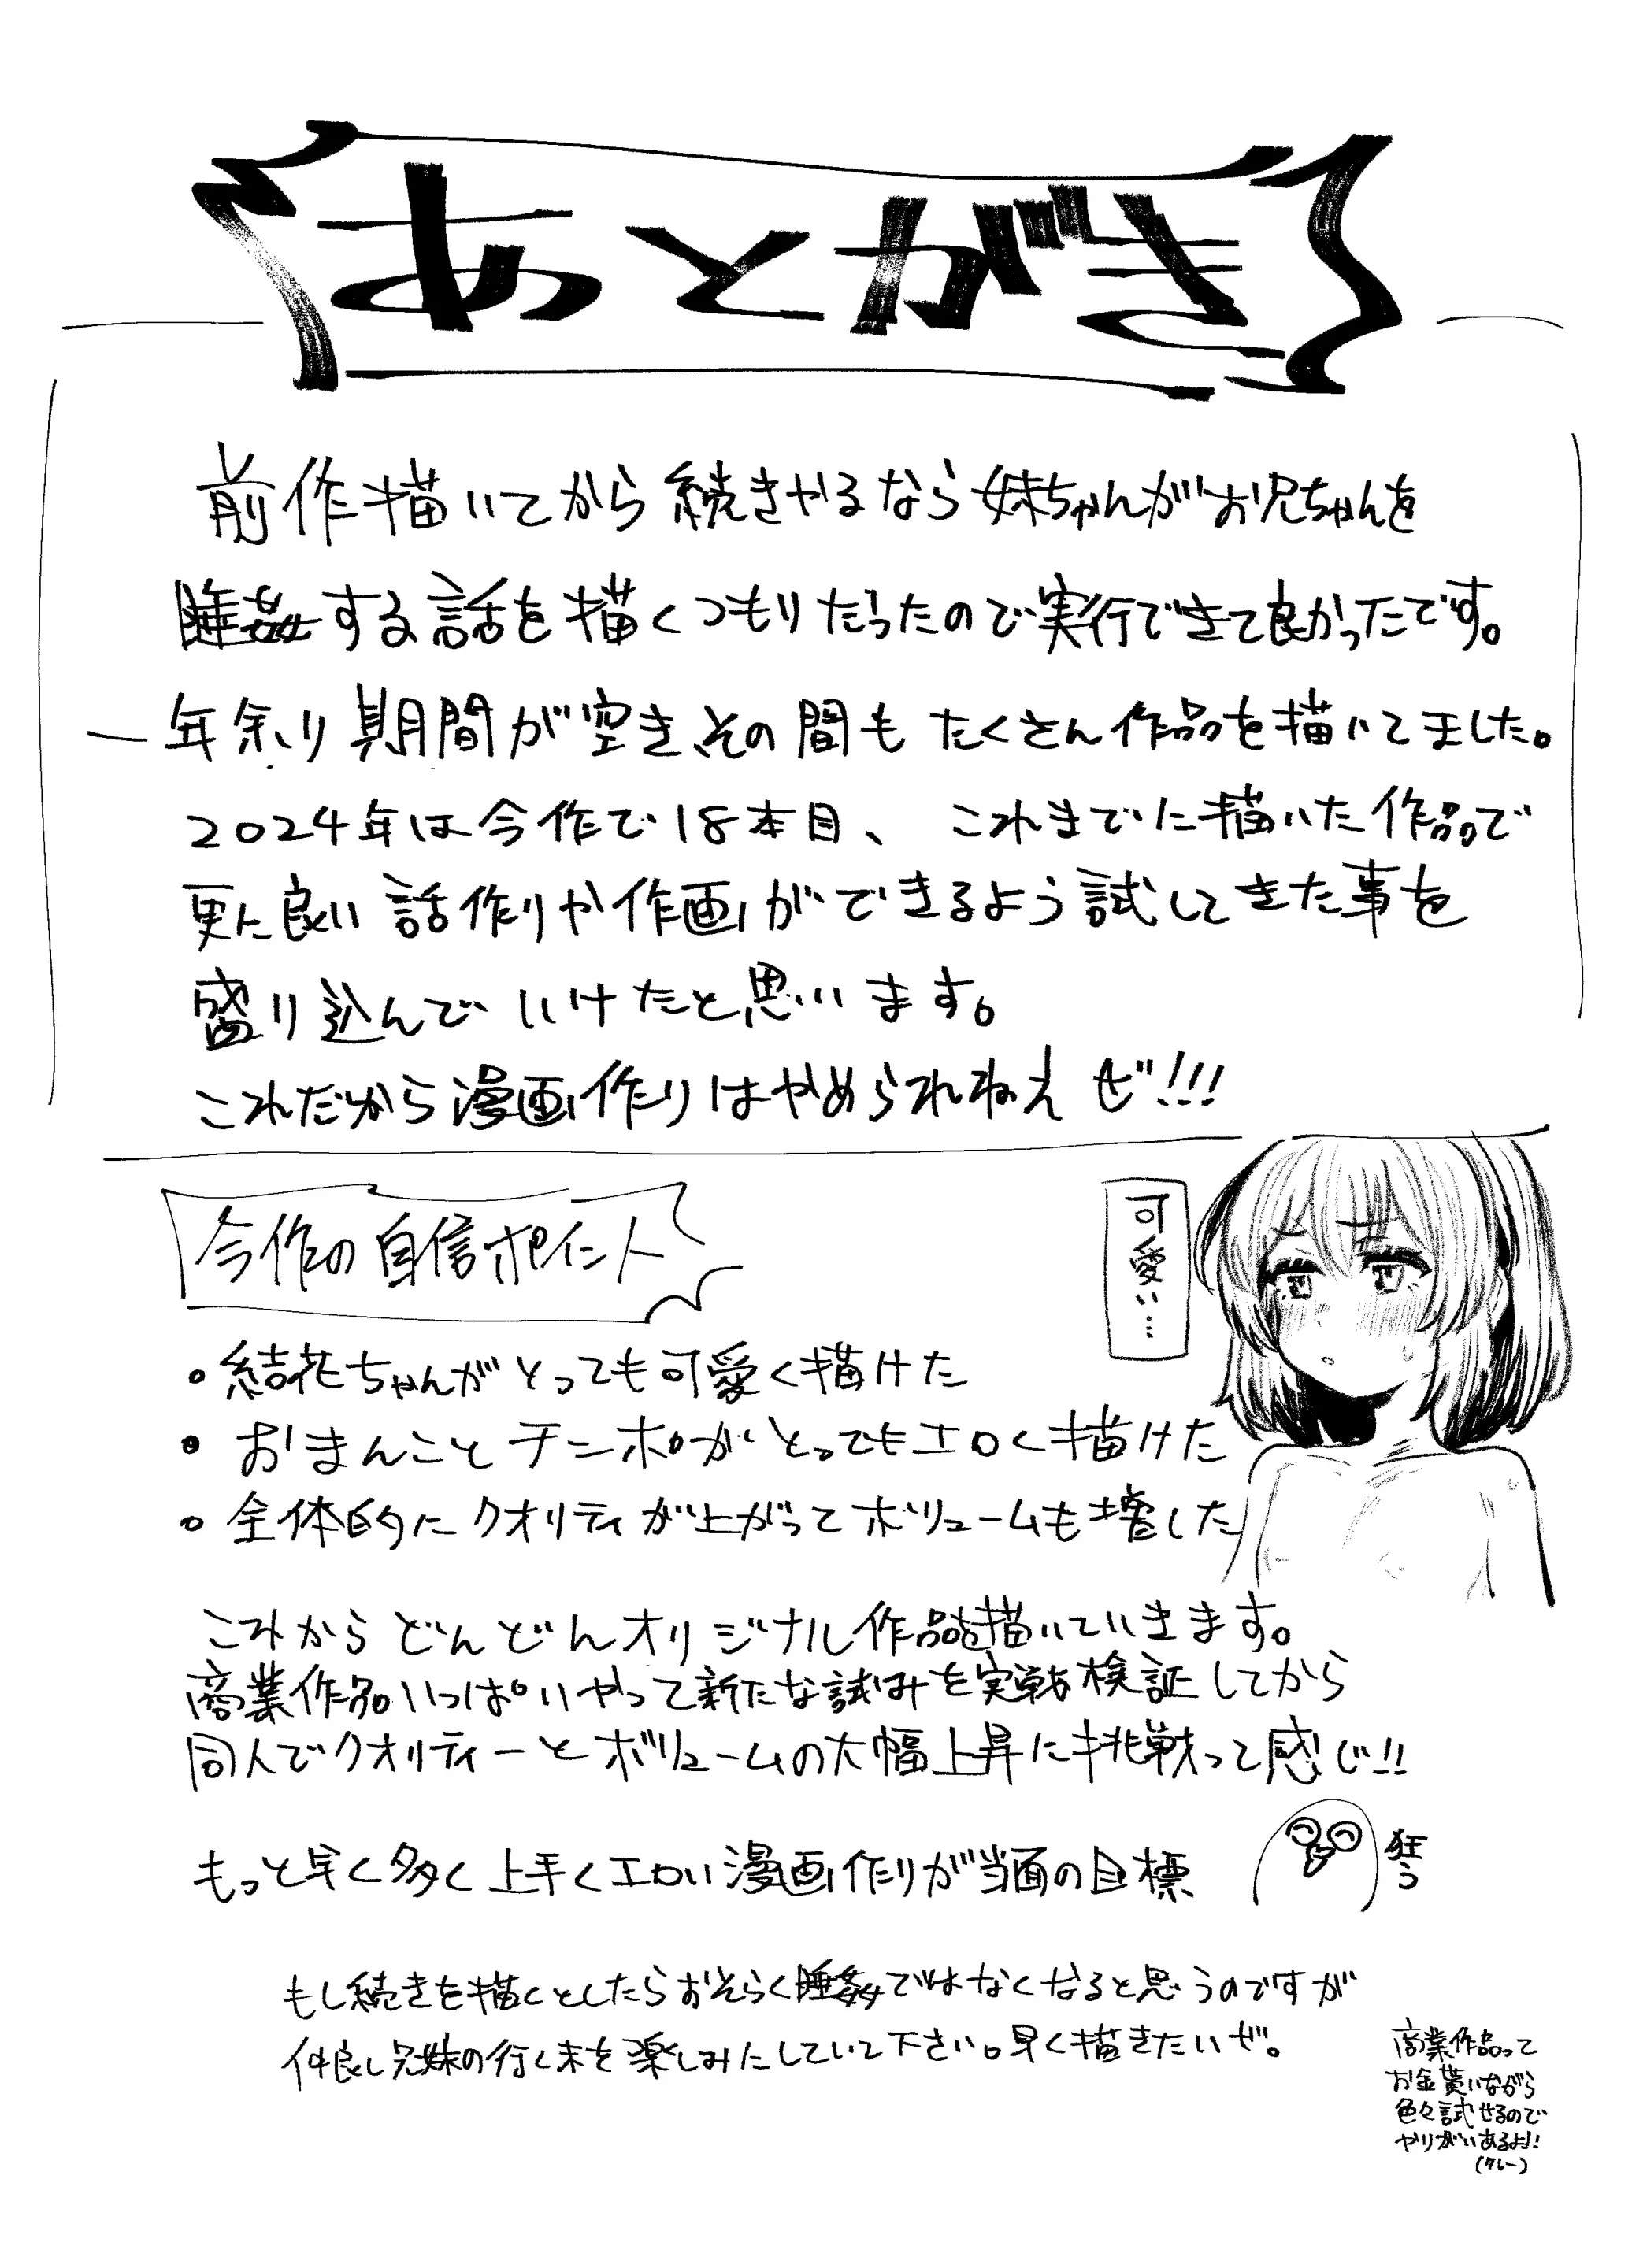 あとがき
前作描いてから続きやるなら妹ちゃんがお兄ちゃんを
睡姦する話を描くつもりだったので実行できて良かったです。
一年余り期間が空き、その間もたくさん作品を描いてました。
2024年は今作で18本目、これまでに描いた作品で
更に良い話作りや作画ができるよう試してきた事を
盛り込んでいけたと思います。
これだから漫画作りはやめられねえぜ!!!
今作の自信ポイント
可愛い…
・結花ちゃんがとっても可愛く描けた
・おまんことチンポがとってもエロく描けた
・全体的にクオリティが上がってボリュームも増した
これからどんどんオリジナル作品を描いていきます。
商業作品いっぱいやって新たな試みを実戦検証してから
同人でクオリティーとボリュームの大幅上昇に挑戦って感じ!!
もっと早く多く上手くエロい漫画作りが当面の目標
狂う
もし続きを描くとしたらおそらく睡姦ではなくなると思うのですが
仲良し兄妹の行く末を楽しみにしていて下さい。早く描きたいぜ。
商業作品って
お金貰いながら
色々試せるので
やりがいあるよ!!
(クレー)